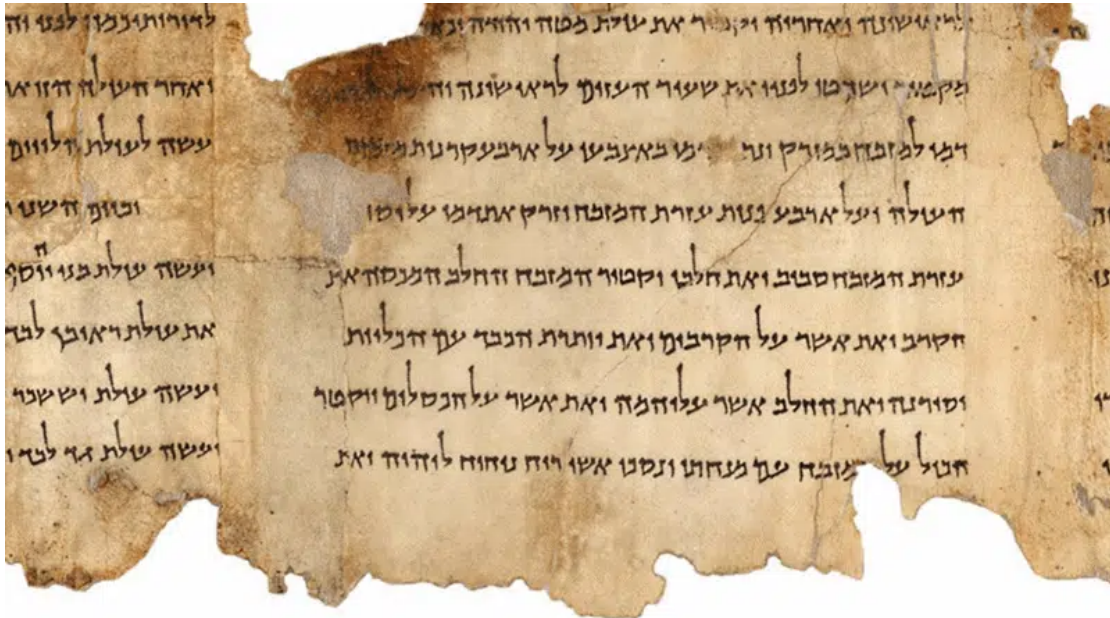 ואחריה יקטיר את עולת מטה יהודה
מקטיר ושחטו לפניו את שעיר העזים לראישונה
דמו למזבח במזרק באצבעו על ארבע קרנות
העולה ועל ארבע פנות עזרת המזבח וזרק את דמו על יסוד
עזרת המזבח סביב ואת חלבו יקטיר המזבח החלב המכסה את
הקרב ואת אשר על הקרבים ואת יותרת הכבד עם הכליות
יסירנה ואת החלב אשר עליהמה ואת אשר על הכסלים ויקטר
הכול על המזבח עם מנחתו ונסכו אשי ריח ניחוח ליהוה ואת
לפני
ואחר העולה הזואת
עשה לעולת הלויים
וביום השני
ועשה עולת בני יוסף
את עולת ראובן לבד
ועשה עולת יששכר
ועשה עולת גד לבד